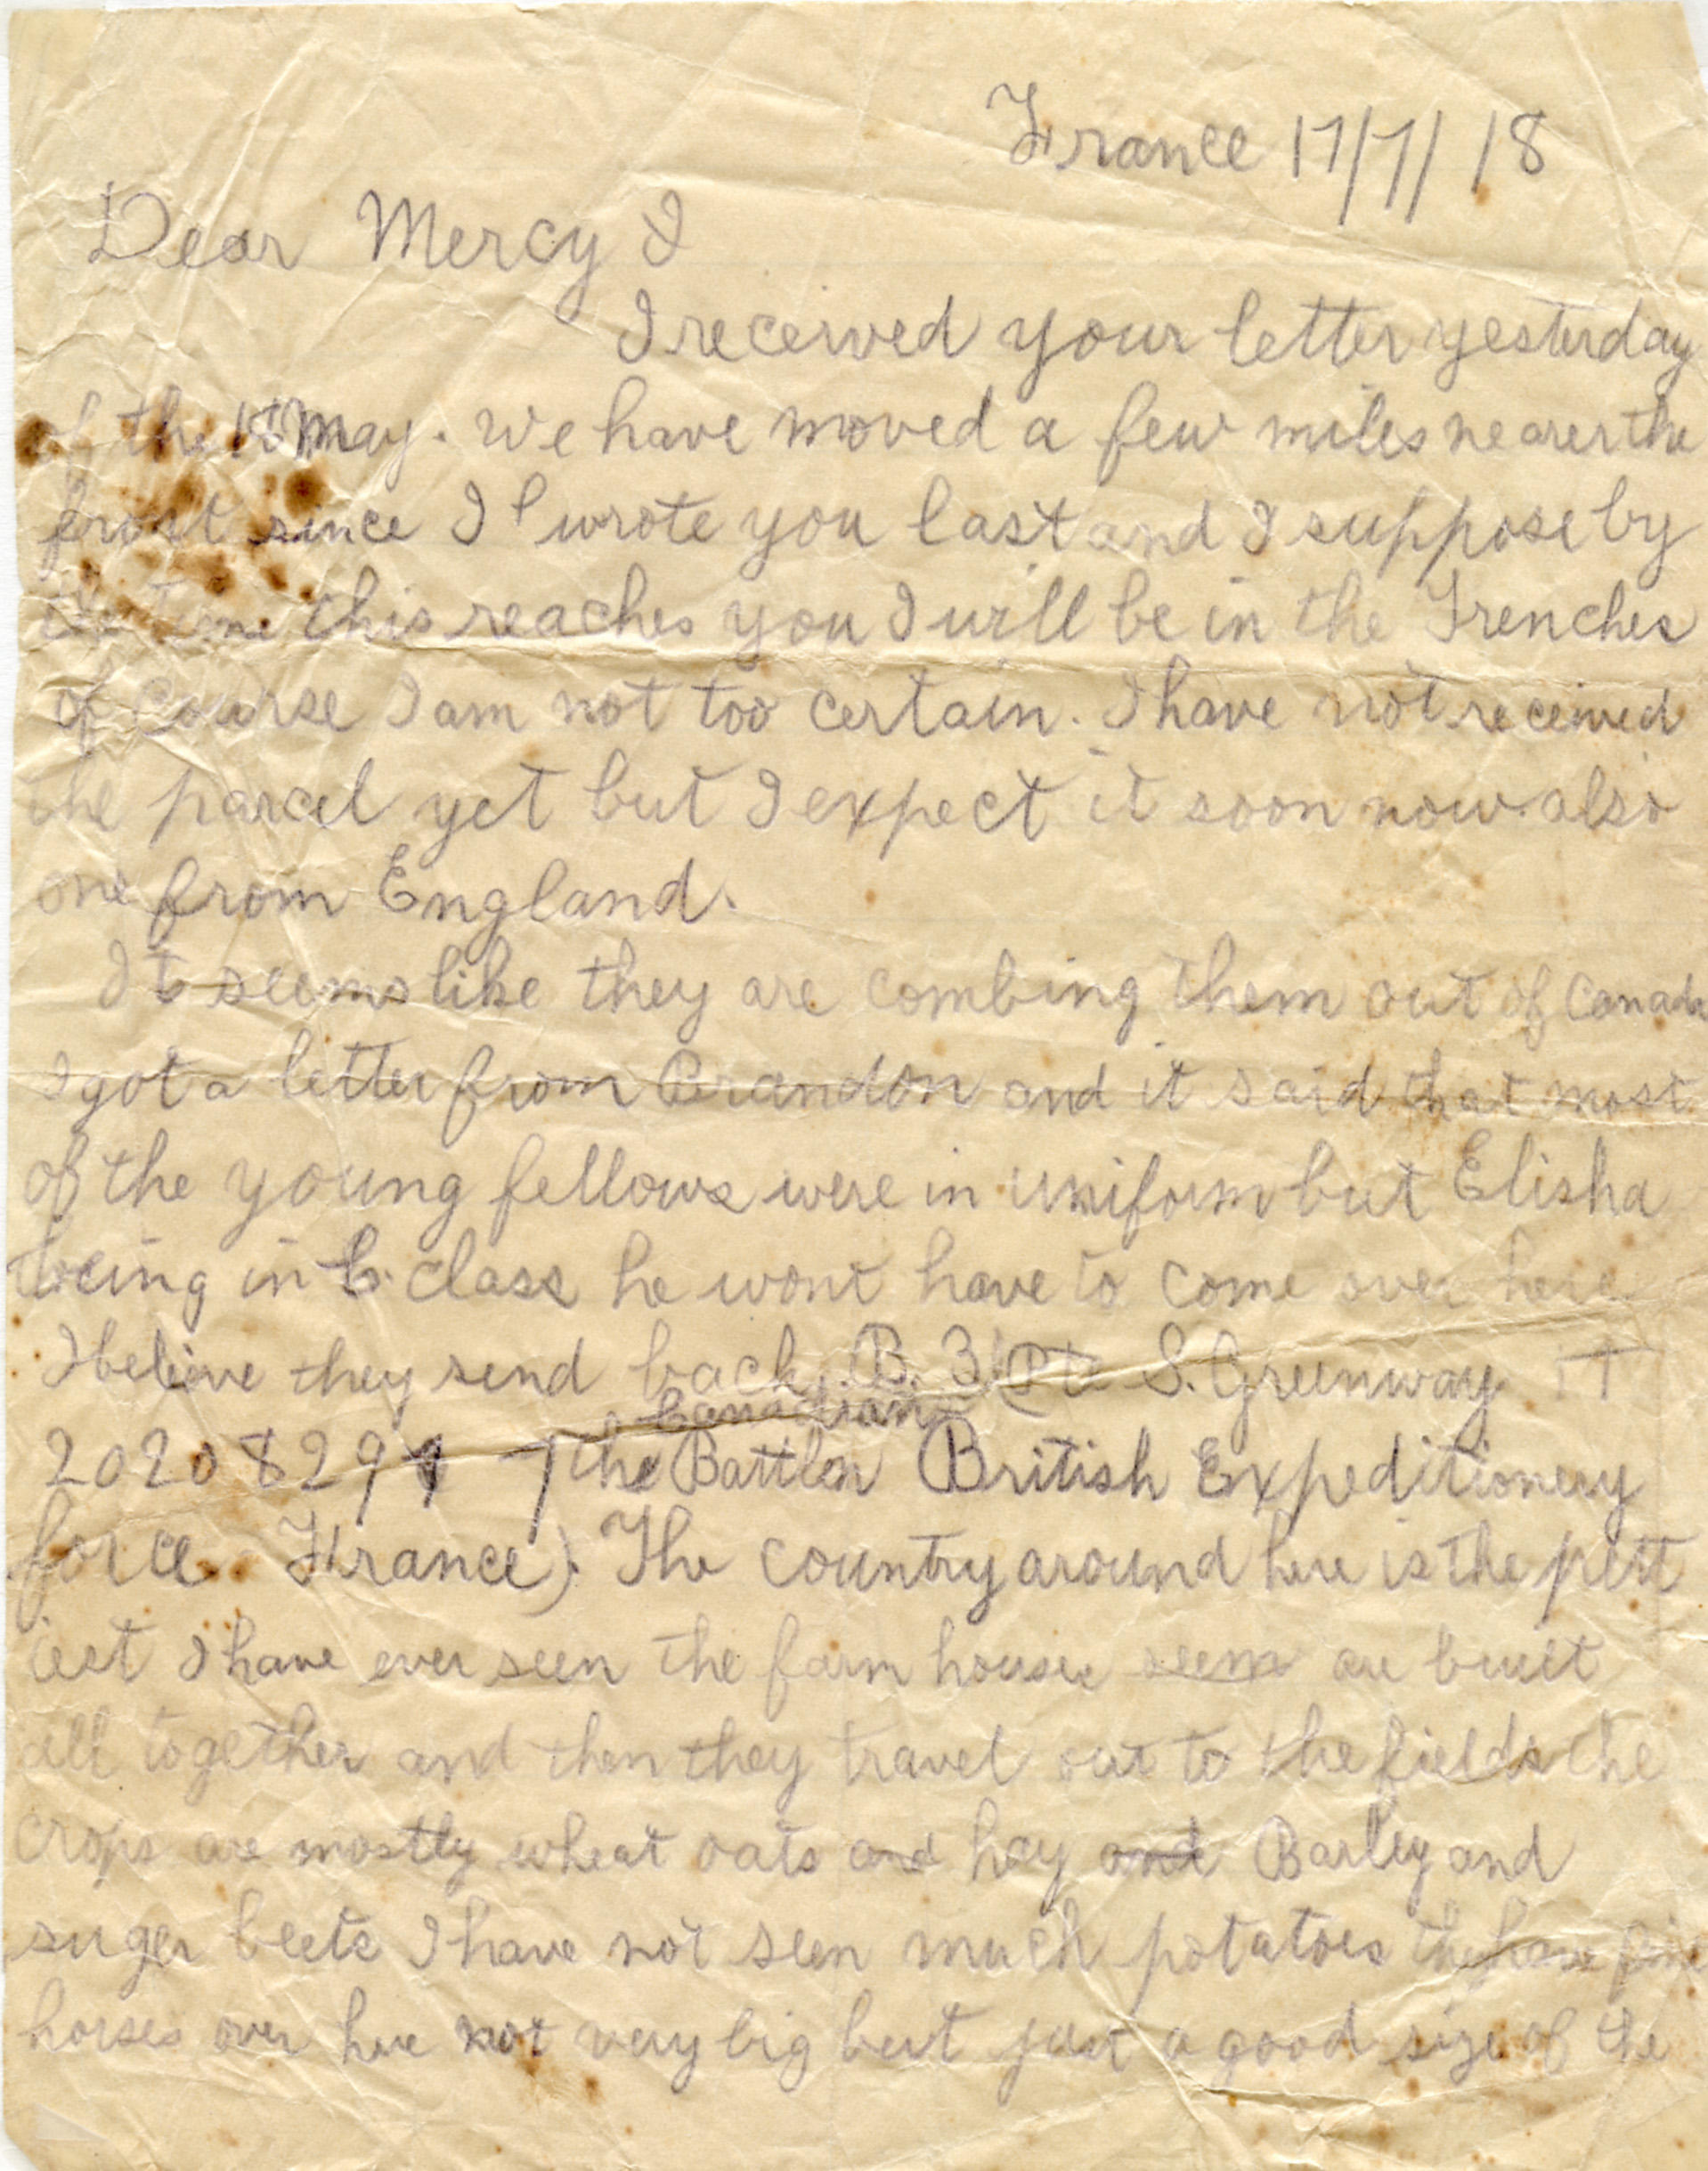 France 17/7/18
Dear Mercy I
I received your letter yesterday
of the May. We have moved a few miles nearer the
front since I wrote you last and I suppose by
the time this reaches you I will be in the Trenches
of course I am not too certain. I have not received
the parcel yet but I expect it soon now also
one from England.
It seems like they are combing them out of Canada
I got a letter from Brandon and it said that most
of the young fellows were in uniform but Elisha
being in class he wont have to come over here
I believe they send back B. 3 (Pte S. Greenway
Canadian
2020829 7 the Battlon British Expeditionery
force France). The country around here is the pett
iest I have ever seen the farm houses seem are built
all together and then they travel out to the fields the
crops are mostly wheat oats and hay and Barley and
suger beets I have not seen much potatoes they have fine
horses over here not very big but just a good size of the